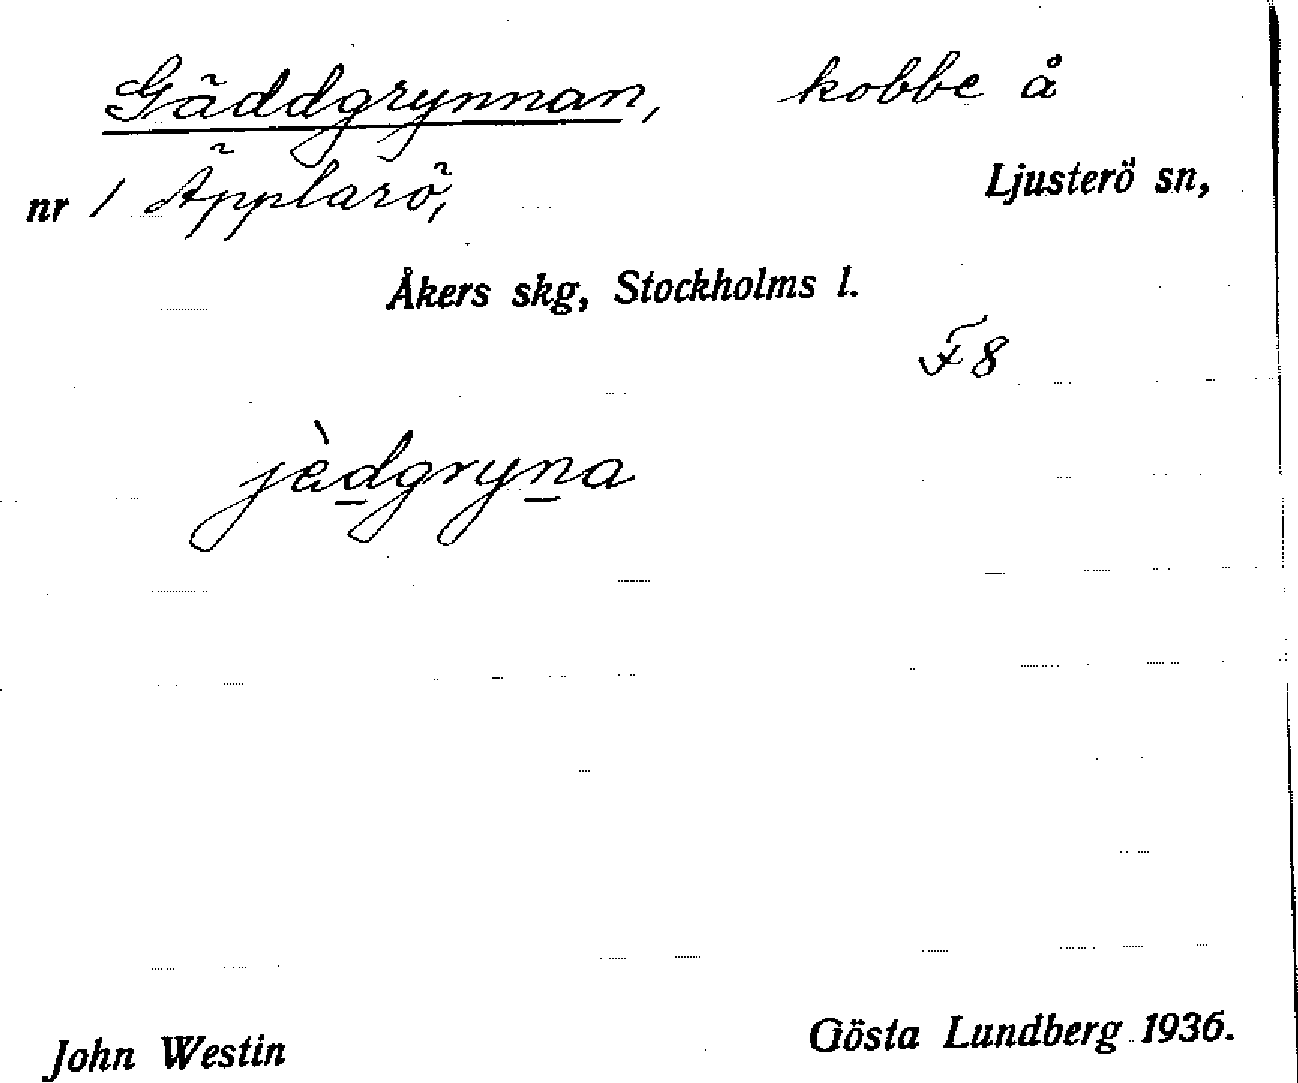 Gäddgrynnan, kobbe å
nr 1 Äpplarö, Ljusterö sn,
Åkers skg, Stockholms l.
F8
jèdgryna
John Westin Gösta Lundberg 1936.